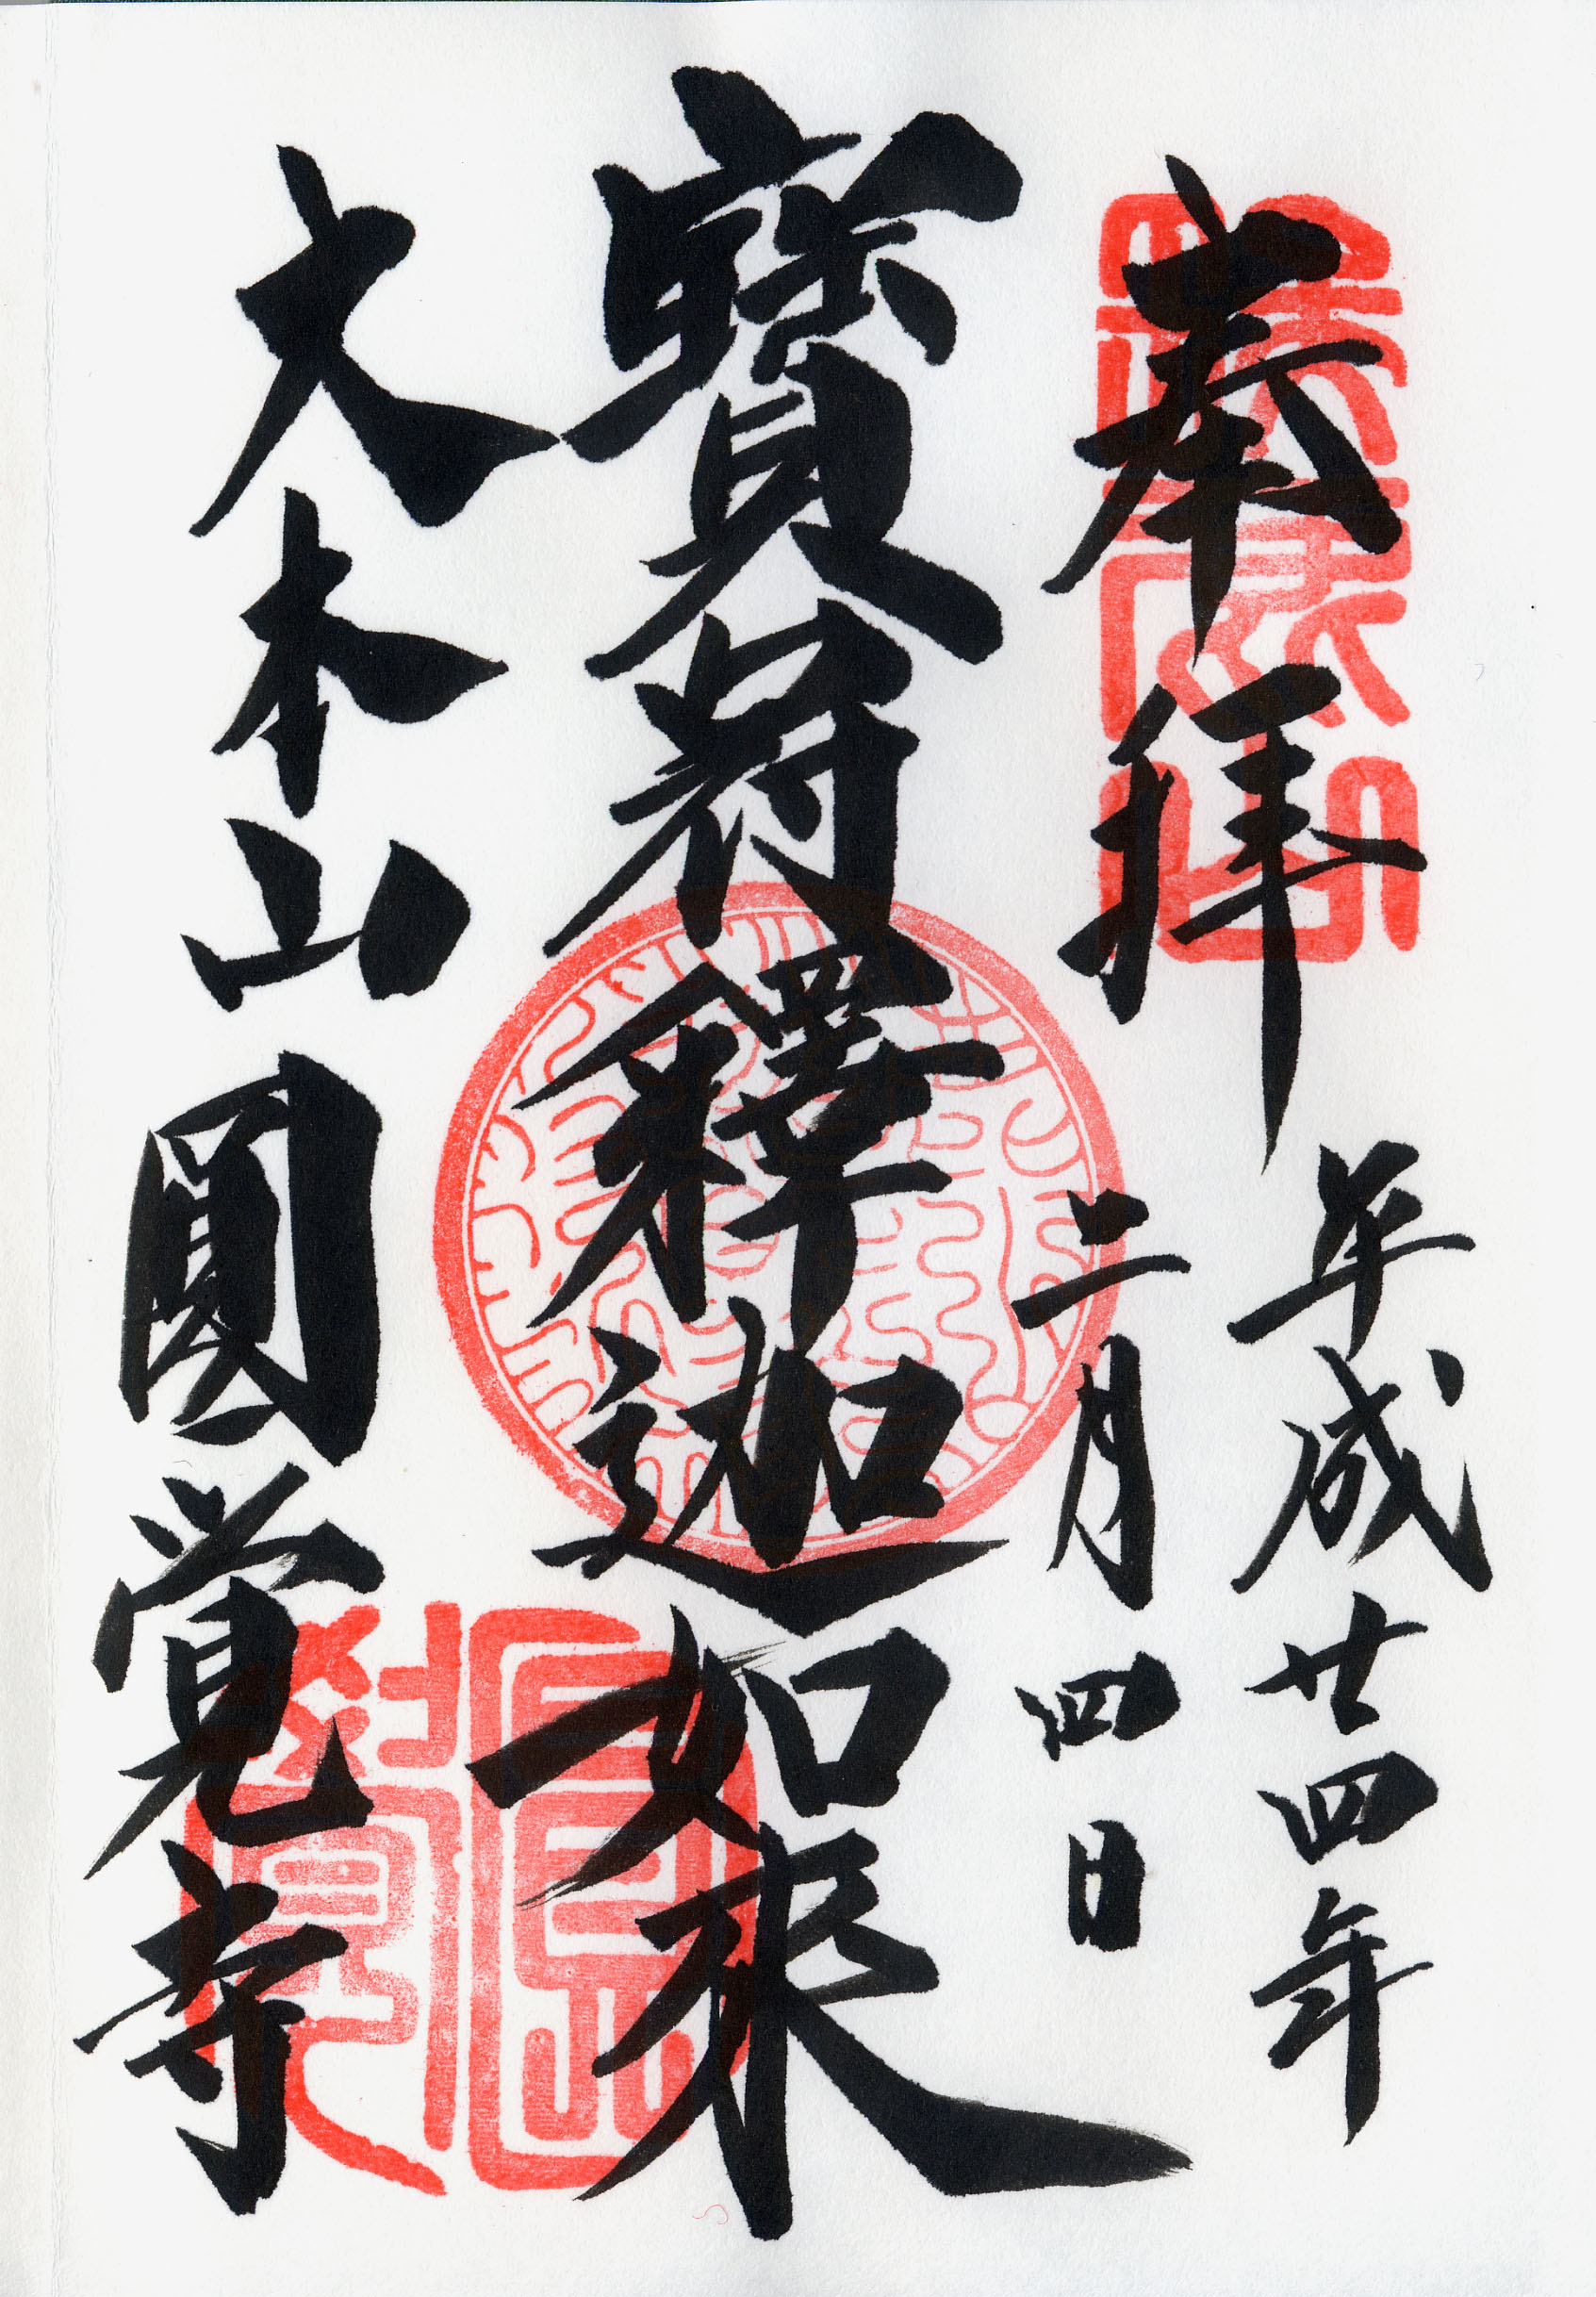 奉拝
平成廿四年
二月四日
寶冠釋迦如來
大本山圓覚寺